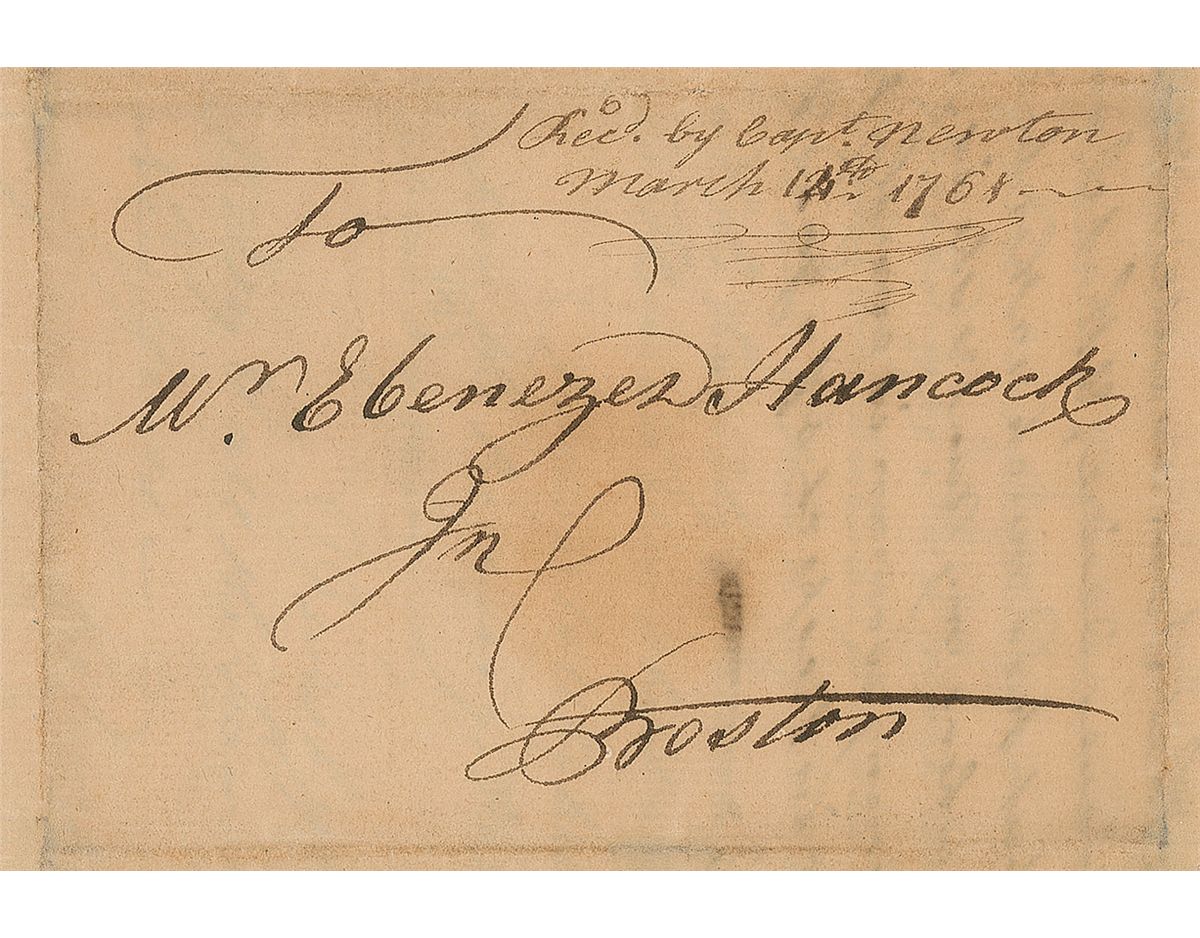 Rec'd. by Capt. Newton
March 14th 1761
To
Mr. Ebenezer Hancock
In
Boston